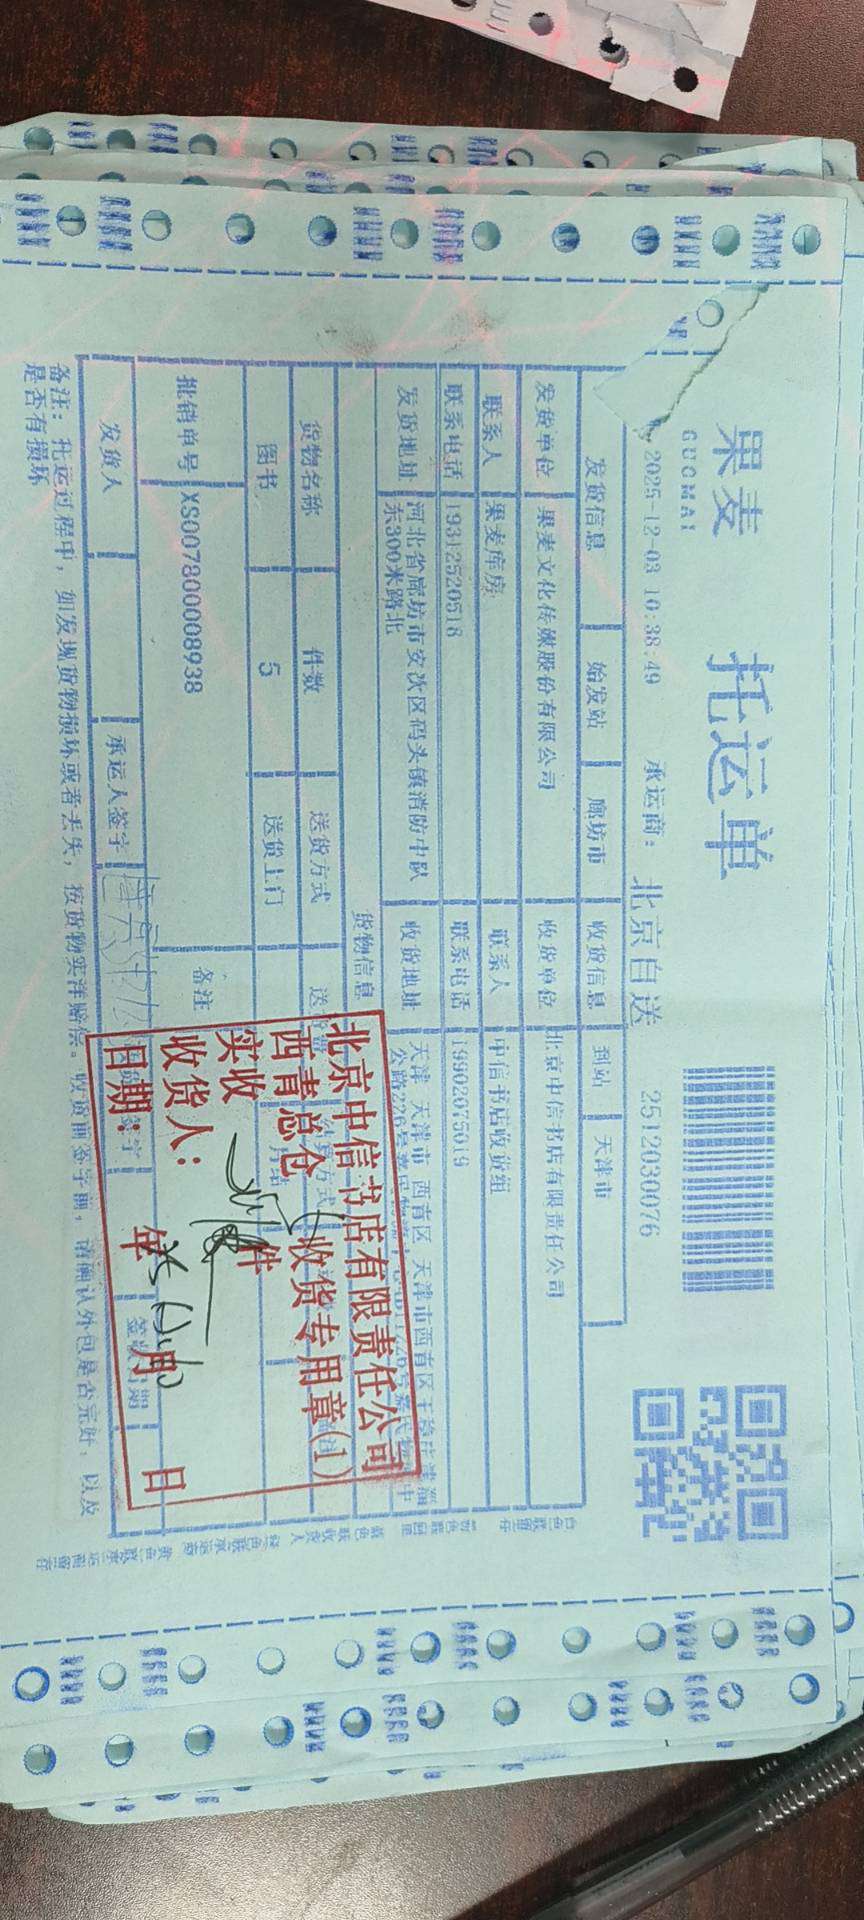 果麦 托运单
GUOMAI
2025-12-03 10:38:49 承运商： 北京自送 2512030076
发货信息 始发站 廊坊市 收货信息 到站 天津市
发货单位 果麦文化传媒股份有限公司 收货单位 北京中信书店有限责任公司
联系人 果麦库房 联系人 中信书店收货组
联系电话 19312520518 联系电话 19902075019
发货地址 河北省廊坊市安次区码头镇消防中队东300米路北 收货地址 天津 天津市 西青区 天津市西青区
货物信息
货物名称 件数 送货方式
图书 5 送货上门
批销单号 XS007800008938 备注
发货人 承运人签字
备注：托运过程中，如发现货物损坏或者丢失，按货物实洋赔偿。收货前签字前，请确认外包是否完好，以及
是否有损坏
北京中信书店有限责任公司
西青总仓 收货专用章(1)
实收 件
收货人：
日期： 年 月 日